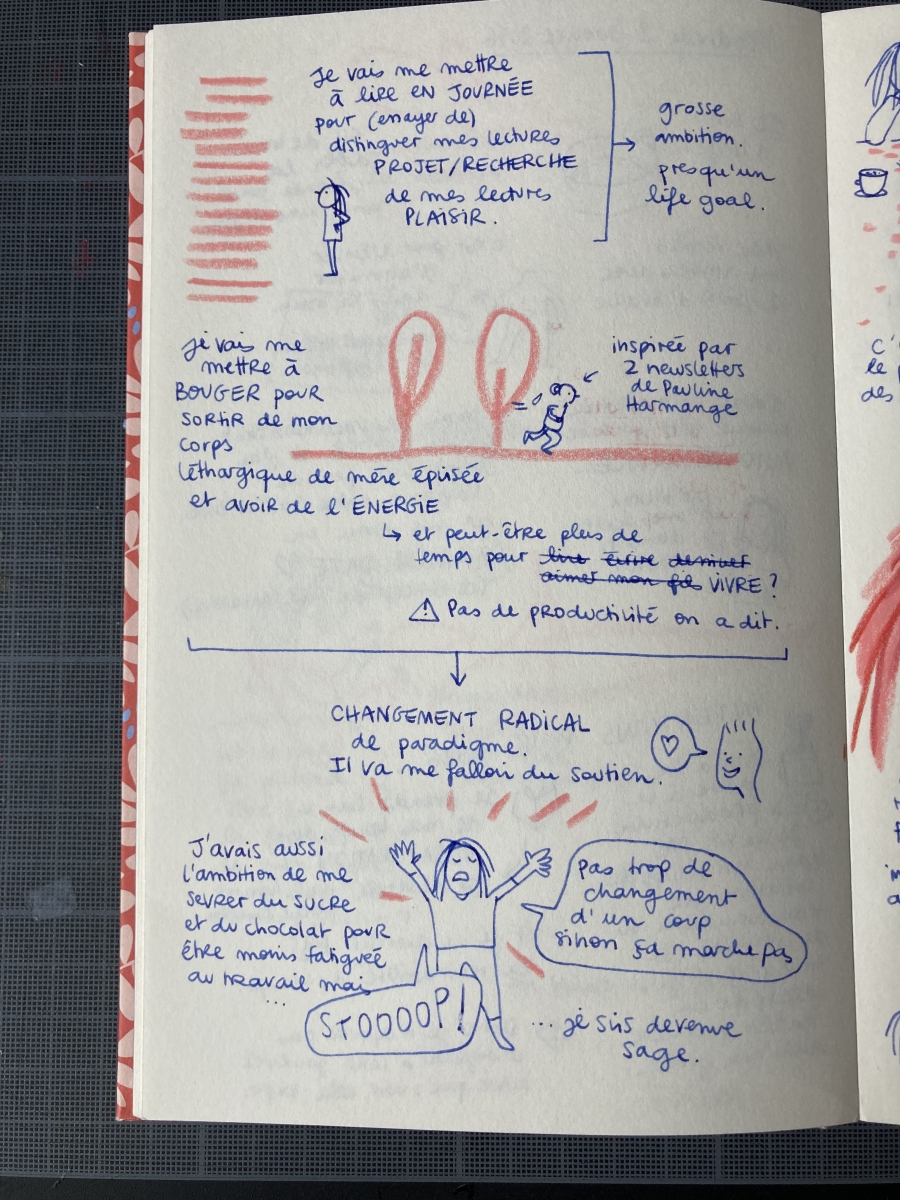 Je vais me mettre
à lire EN JOURNÉE
pour (essayer de)
distinguer mes lectures
PROJET/RECHERCHE
de mes lectures
PLAISIR.
grosse
ambition.
presqu'un
life goal.
je vais me
mettre à
BOUGER pour
sortir de mon
corps
léthargique de mère épuisée
et avoir de l'ÉNERGIE
inspirée par
2 newsletters
de Pauline
Harmange
↳ et peut-être plus de
temps pour lire écrire dessiner
aimer mon fils VIVRE ?
⚠ Pas de productivité on a dit.
CHANGEMENT RADICAL
de paradigme.
Il va me falloir du soutien.
J'avais aussi
l'ambition de me
sevrer du sucre
et du chocolat pour
être moins fatiguée
au travail mais
...
STOOOOP!
Pas trop de
changement
d'un coup
sinon ça marche pas
... je suis devenue
sage.
C'
le
des